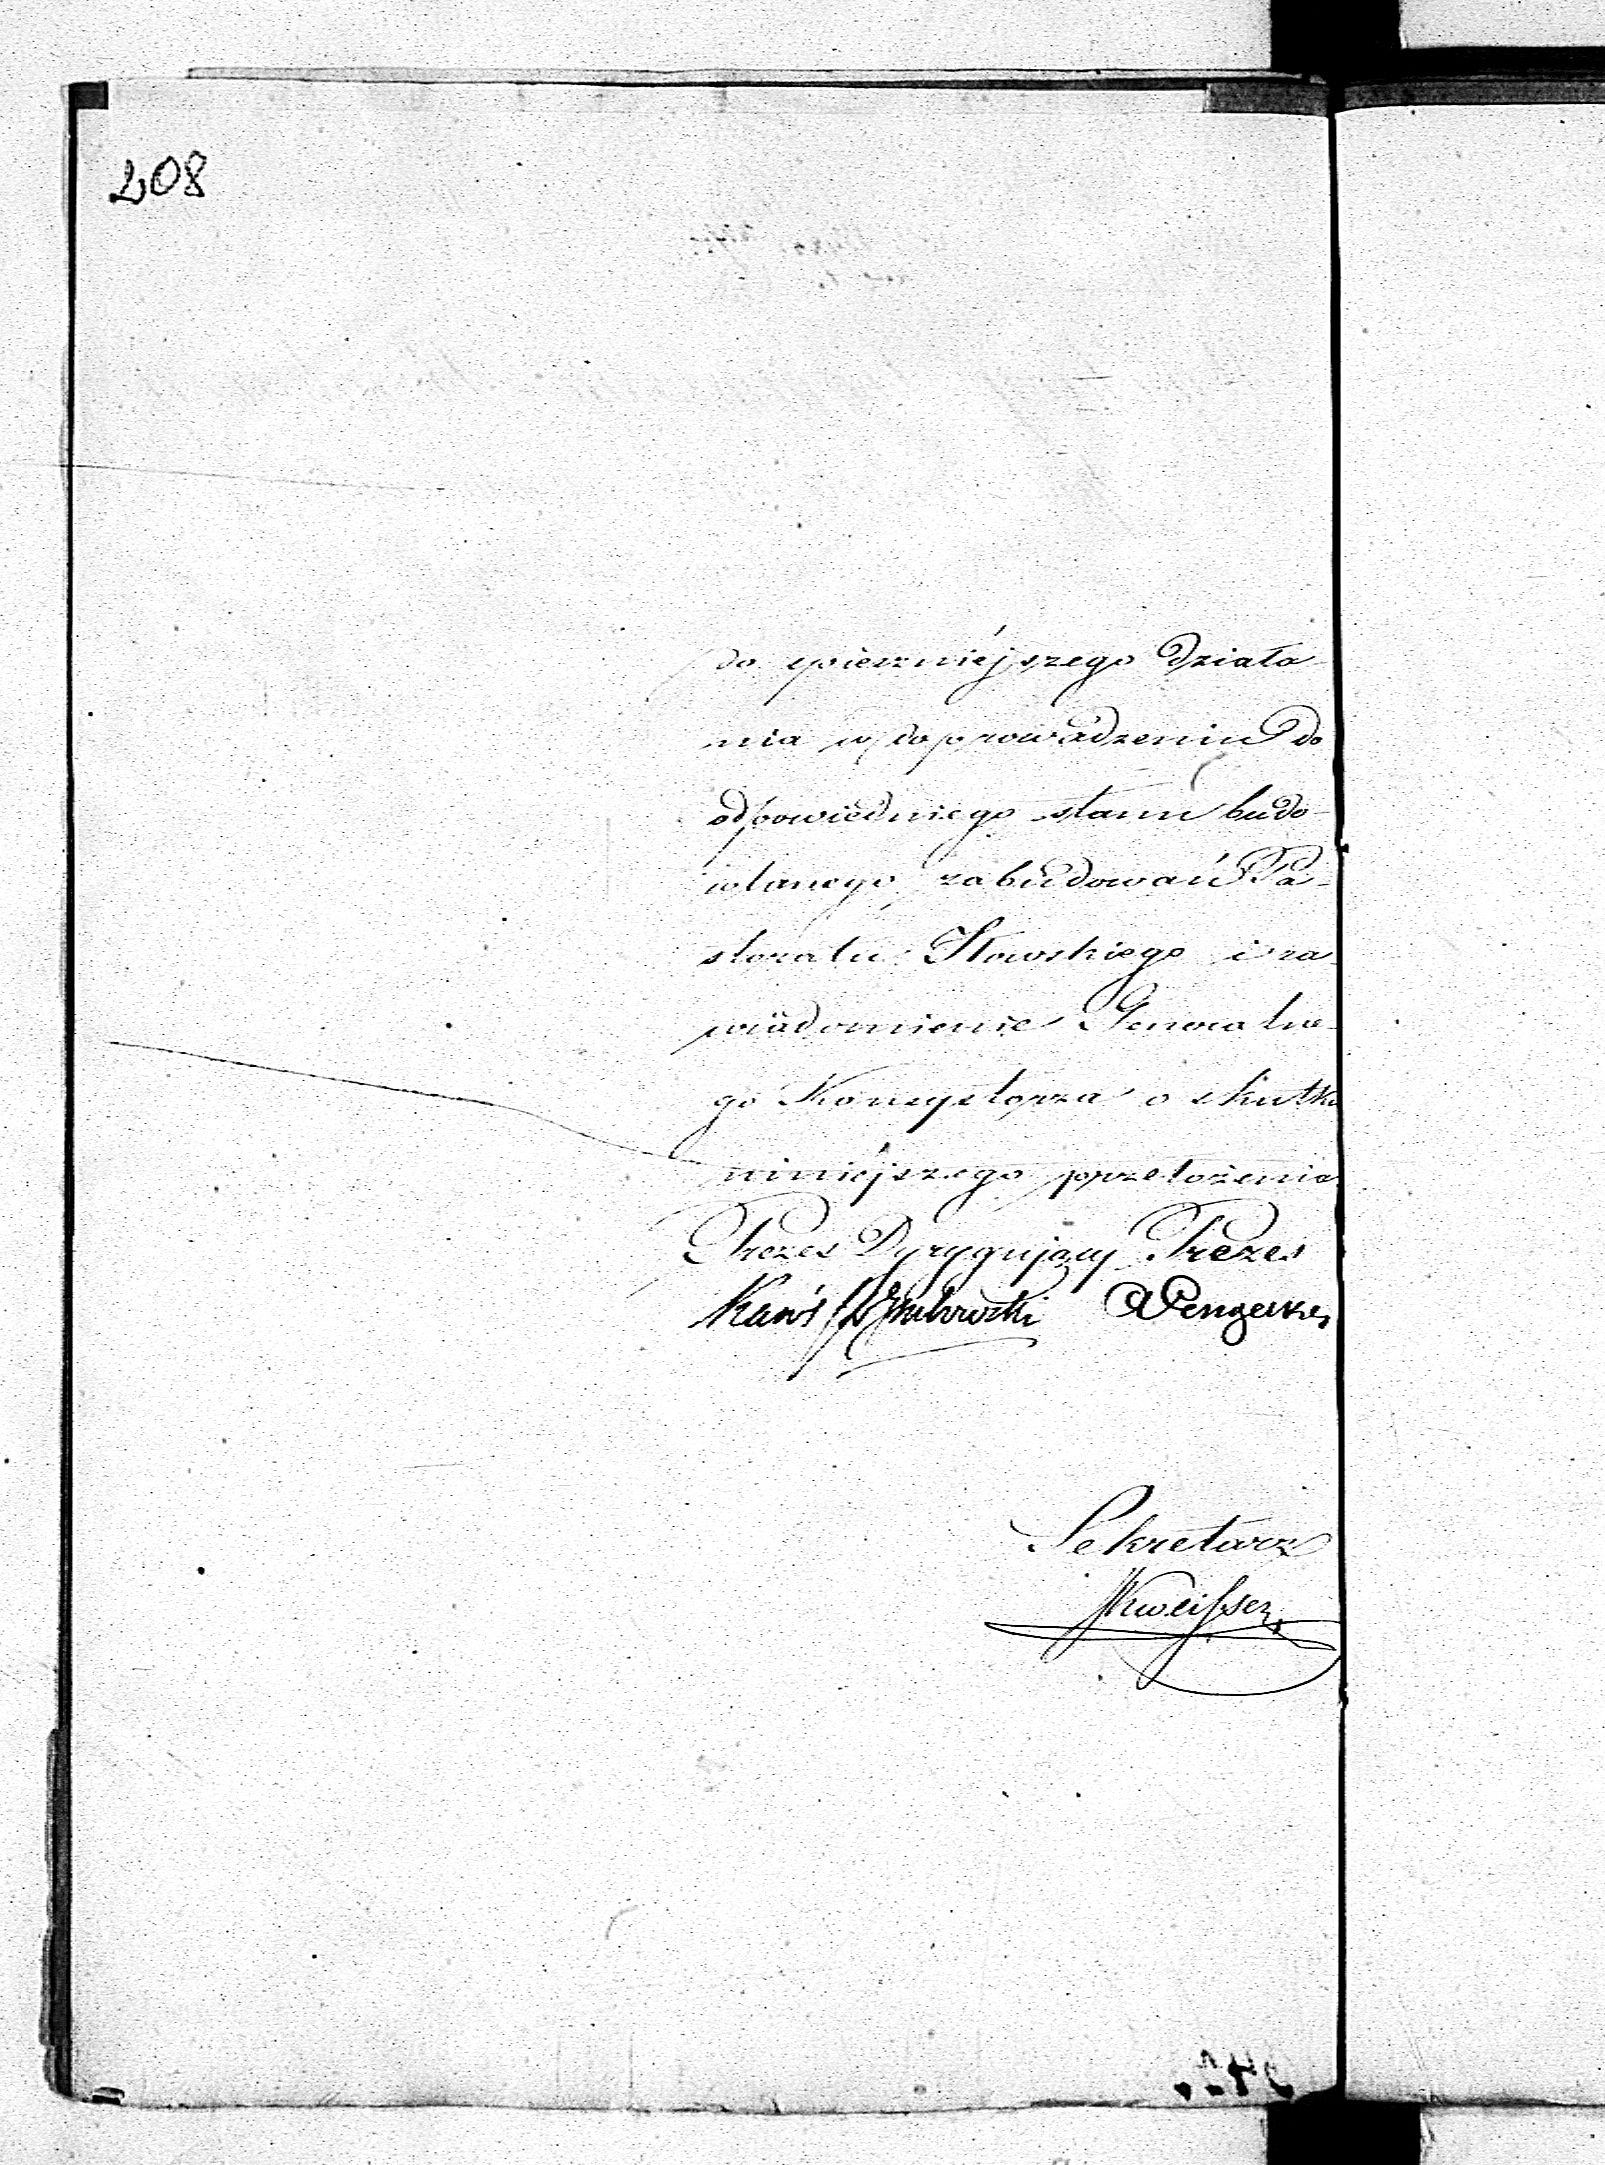 208
do spieszniejszego działa-
nia w doprowadzeniu do
odpowiedniego stanu budo-
wlanego zabudowań Pa-
storatu Iłowskiego i za-
wiadomienie Generalne-
go Konsystorza o skutku
niniejszego przełożenia
Prezes Dyrygujący Prezes
Sekretarz